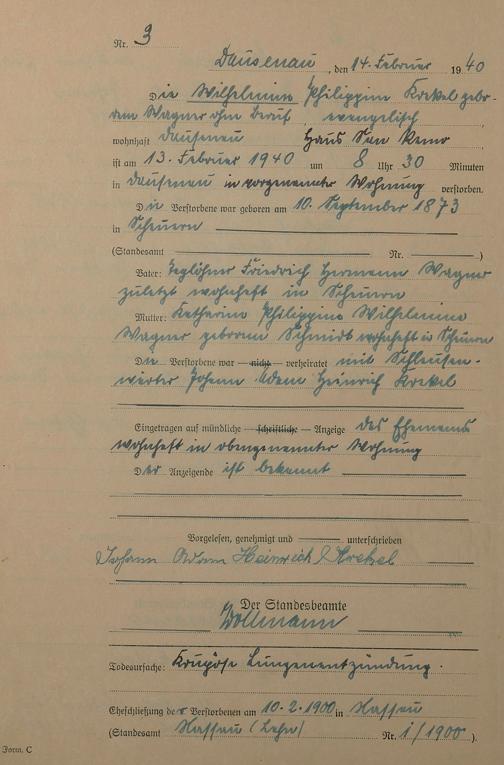 Nr. 3
Dausenau, den 14. Februar 1940
Die Wilhelmine Philippine Krekel gebo-
rene Wagner ohne Beruf, evangelisch
wohnhaft Dausenau Haus San Remo
ist am 13. Februar 1940 um 8 Uhr 30 Minuten
in Dausenau in vorgenannter Wohnung verstorben.
Die Verstorbene war geboren am 10. September 1873
in Scheuern
(Standesamt Nr. )
Vater: Taglöhner Friedrich Hermann Wagner
zuletzt wohnhaft in Scheuern
Mutter: Katharina Philippine Wilhelmine
Wagner geborene Schmidt wohnhaft in Scheuern
Die Verstorbene war — nicht — verheiratet mit Schleusen-
wärter Johann Adam Heinrich Krekel
Eingetragen auf mündliche — schriftliche — Anzeige des Ehemanns
wohnhaft in obengenannter Wohnung
Der Anzeigende ist bekannt
Vorgelesen, genehmigt und unterschrieben
Johann Adam Heinrich Krekel
Der Standesbeamte
Todesursache: Krupöse Lungenentzündung.
Eheschließung der Verstorbenen am 10.2.1900 in Nassau
(Standesamt Nassau (Lahn) Nr. 1/1900).
Form. C